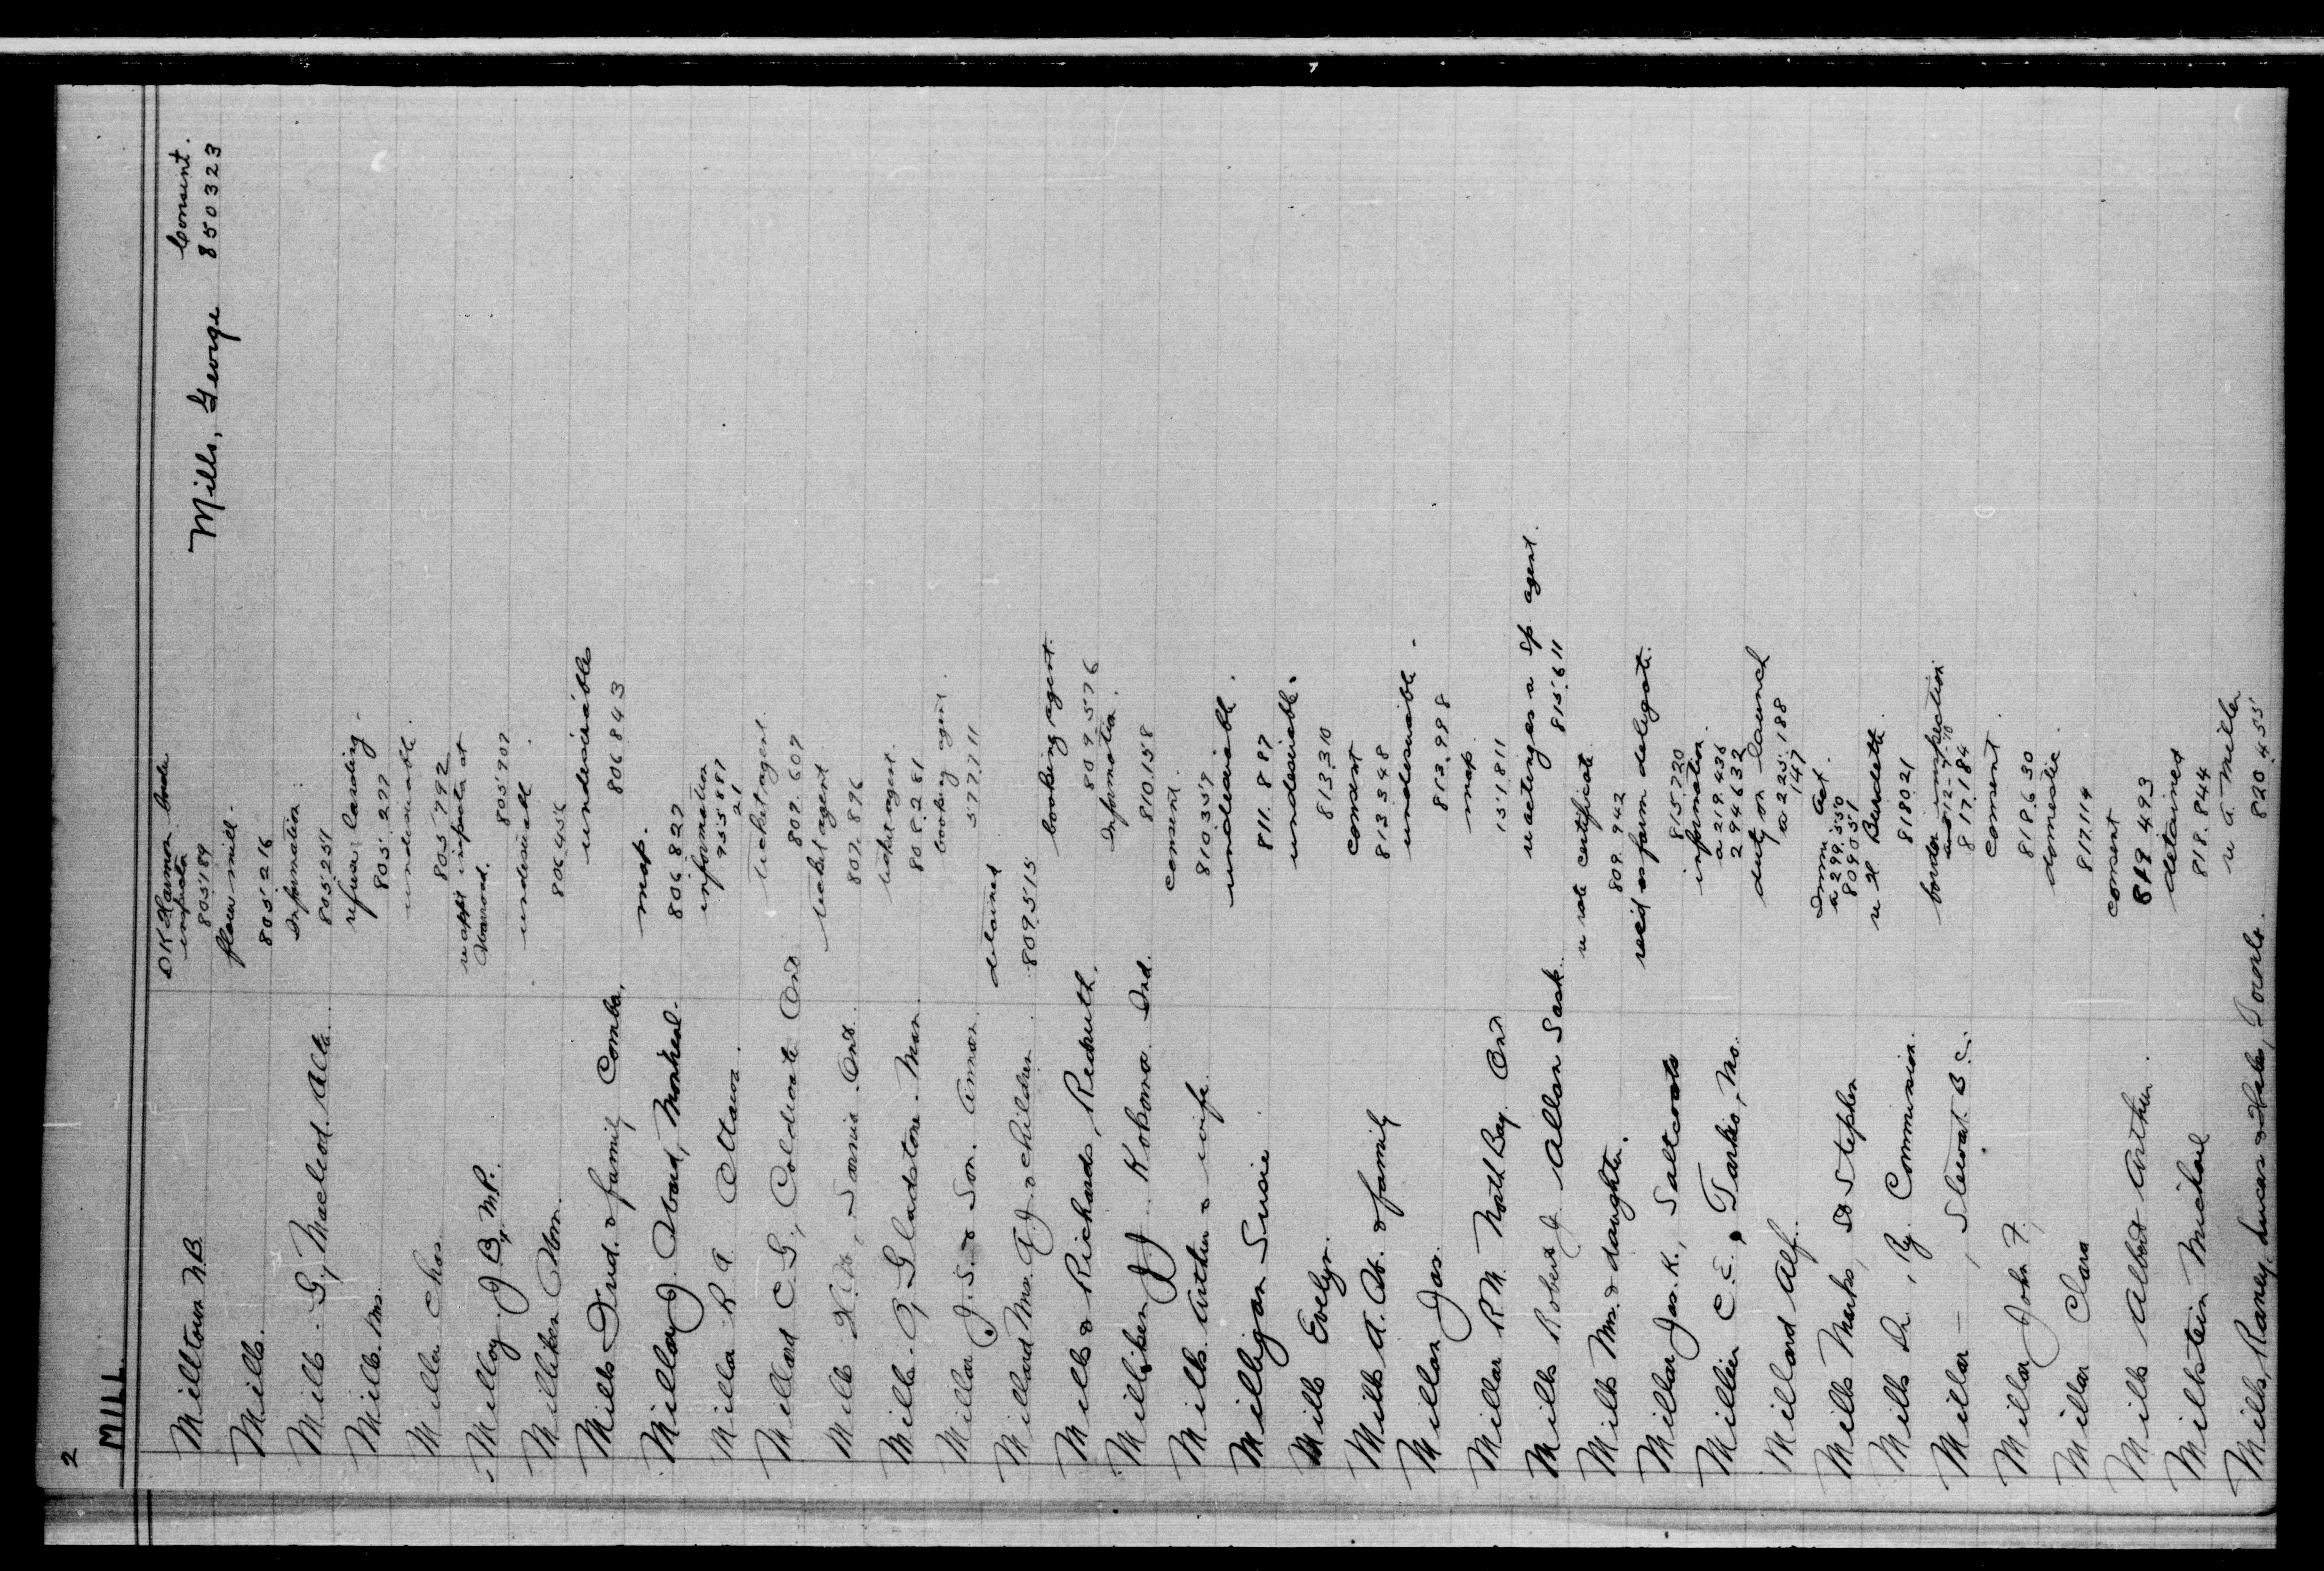 2
MILL
Milltown N.B.
DK Harmon border
inspector
805189
Mills, George
Consent.
850323
Mills.
flour mill.
805216
Mills. G., Macleod. Alta.
Information:
805251
Mills. Mrs.
refuse landing.
805.277
Miller Chas
undesirable.
805792
Milloy. J B, M.P.
re appt inspector at
805902
Milliken Thom.
undesirable.
806456
Mills Fred. & family Comba.
undesirables
806843
Millar J. Ward, Montreal.
map.
806827
Miller R A Ottawa.
information
955887
21
Millard C. G., Coldwater Ont
ticket agent.
807.607
Mills H. W., Sarnia. Ont.
ticket agent
807.896
Mills. A, Gladstone. Man.
ticket agent.
808.281
Millar J. S. & Son.
booking agent.
577711
Millard Mrs. A J & children
detained
809515
Mills & Richards, Redruth.
booking agent.
809576
Milliken J J Kokomo. Ind.
Information.
810.158
Mills. Arthur & wife.
consent.
810359
Milligan Susie
undesirable.
811.887
Mills Evelyn.
undesirable.
813.310
Mills A. W. & family
consent
813348
Millar Jas.
undesirable.
813,998
Millar R M. North Bay. Ont
map.
151811
Mills Robert J Allan Sask.
re acting as a sp agent.
815.611
Mills Mrs. & daughter.
re rate certificate.
809.942
Millar Jas. K., Saltcoats
rec'd as farm delegate.
815.720
Millier C. E., Tarkio, Mo.
information.
a 219.436
294632
Millard Alf.
duty on launch
a 225.188
147
Mills Marks, St Stephen
Immi Act.
a 299.550
809051
Mills Dr., Ry. Commission.
re H Burdette.
818021
Millar — , Stewart. B.C.
border inspection
817.184
Millar John F.
consent.
818.630
Millar Clara
domestic.
817.114
Mills Albert Arthur.
consent
818493
Millstein Michael
detained
818.844
Mills, Raney, Lucas & Hales, Toronto.
re A. Miller
820.455